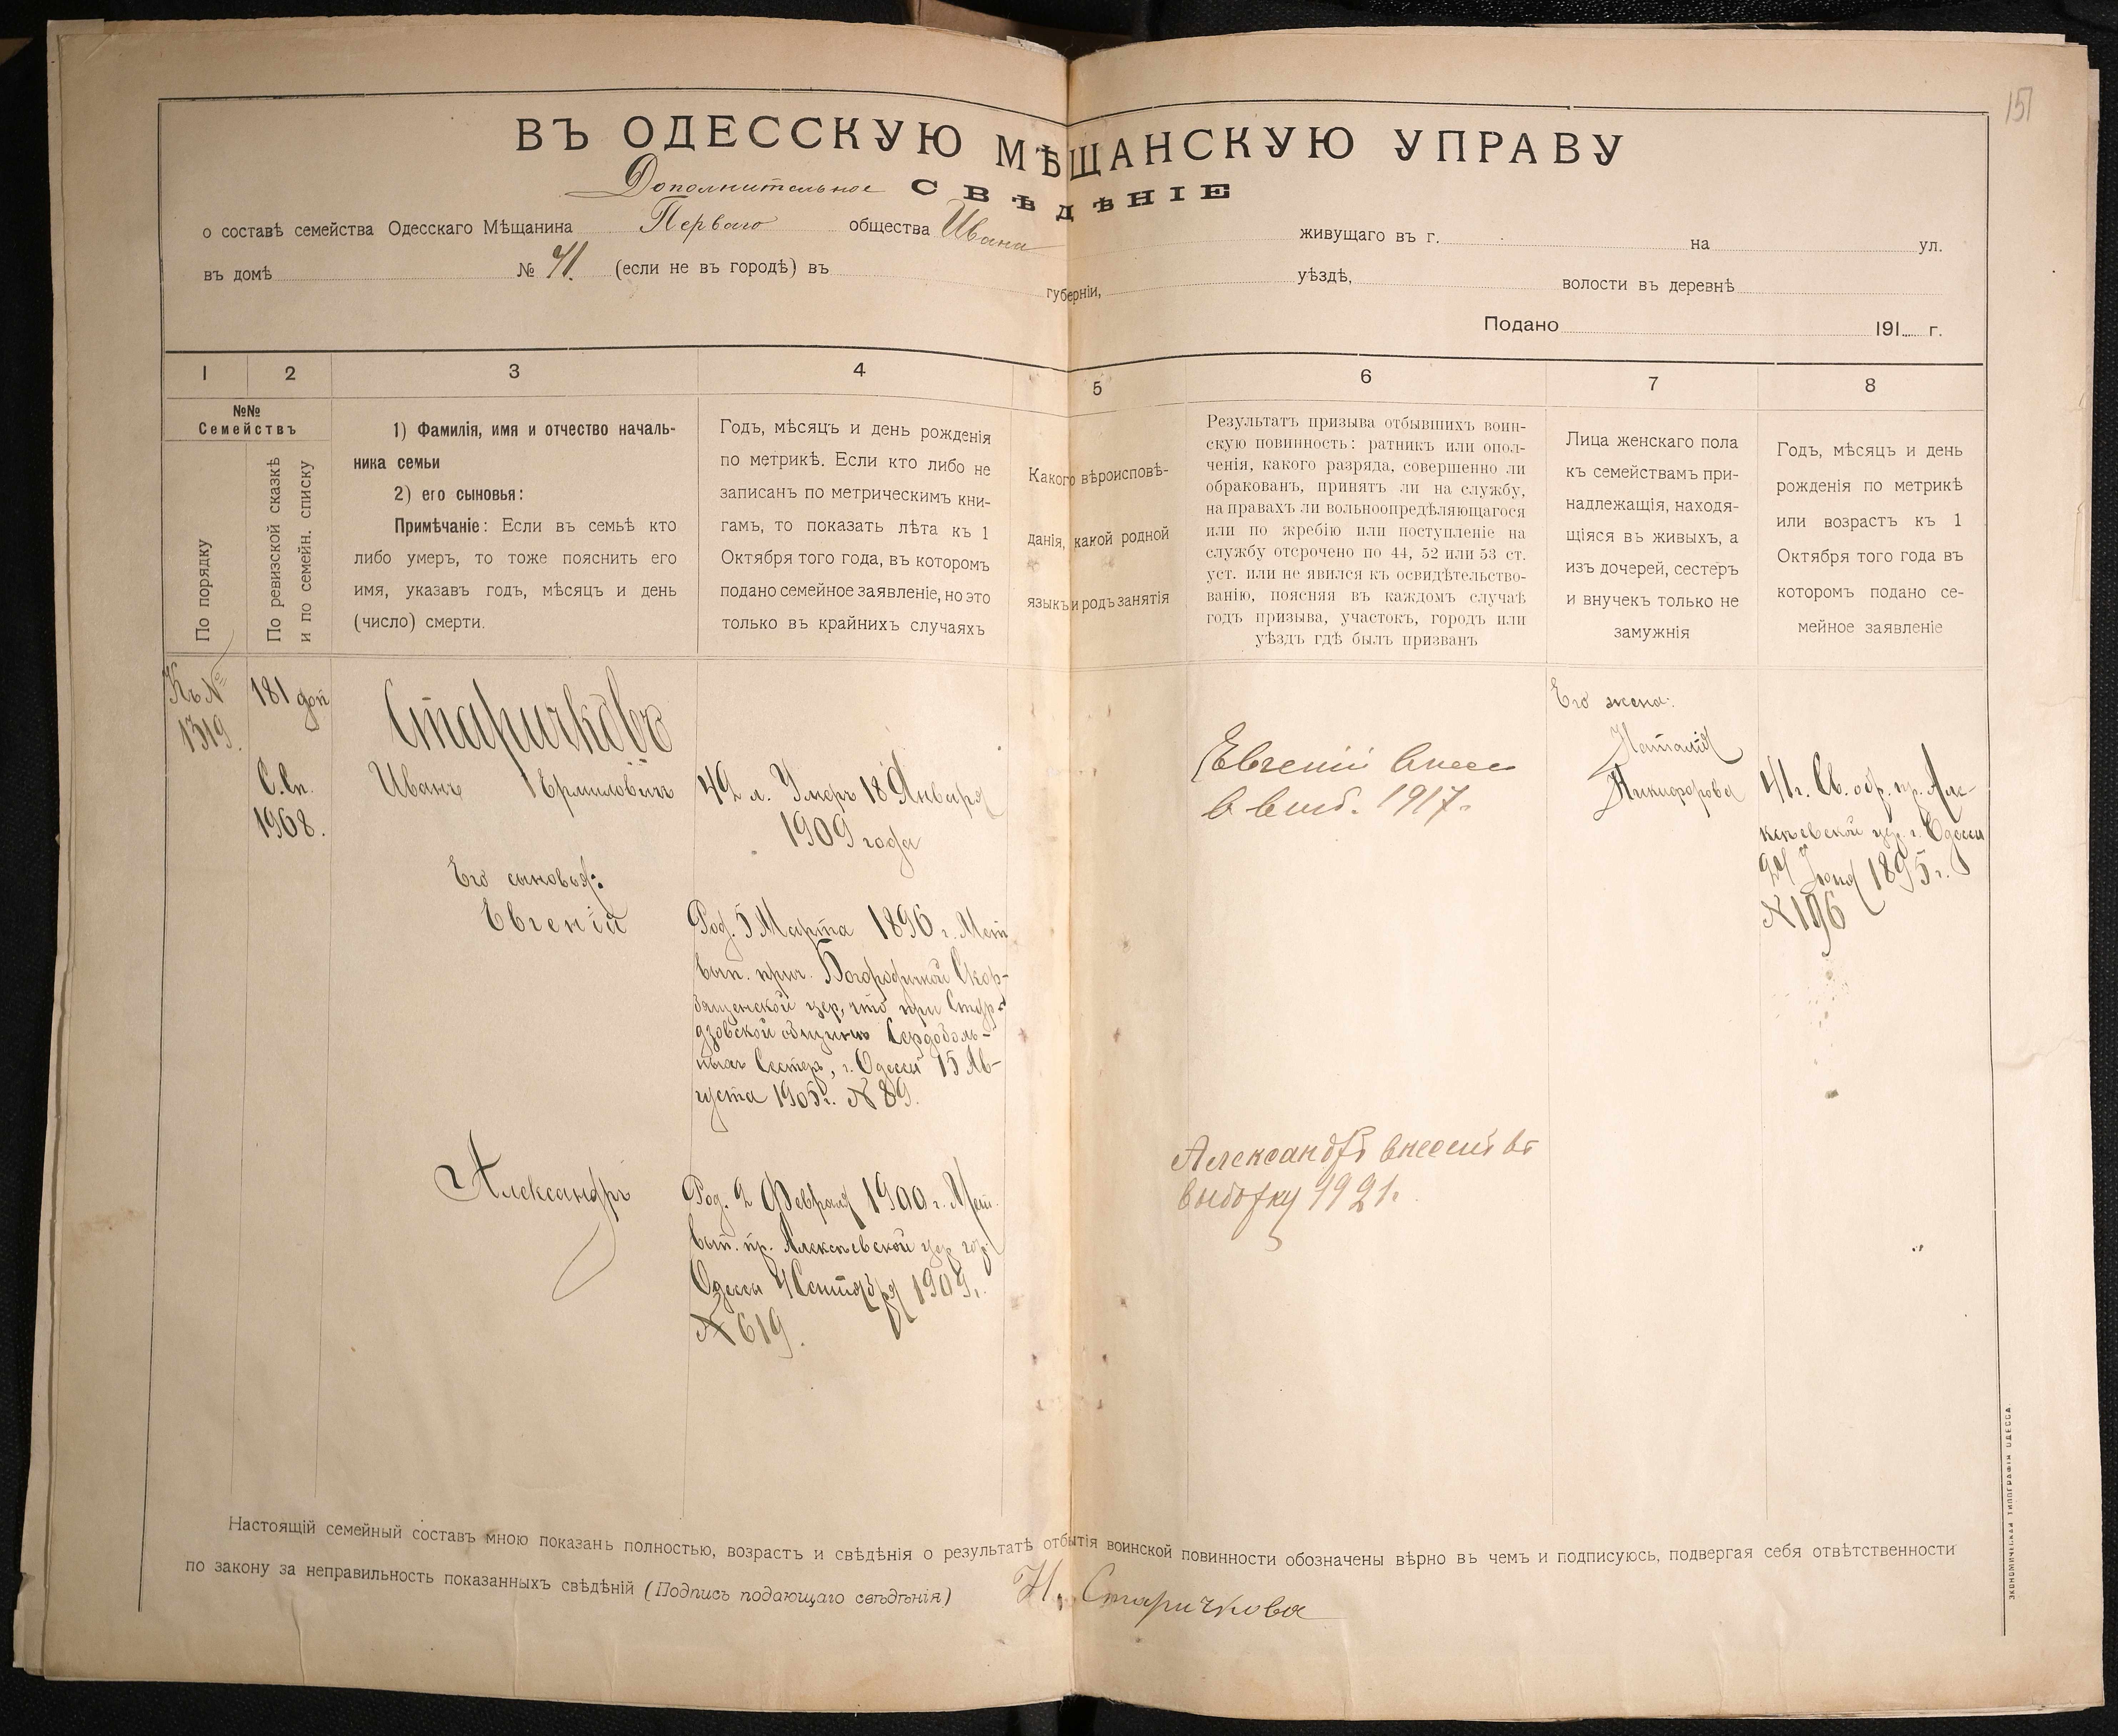 151
ВЪ ОДЕССКУЮ МѢЩАНСКУЮ УПРАВУ
Дополнительное СВѢДѢНІЕ
о составѣ семейства Одесскаго Мѣщанина Перваго общества Ивана живущаго въ г. на ул.
въ домѣ № 41. (если не въ городѣ) въ губерніи, уѣздѣ, волости въ деревнѣ
Подано 191 г.
1 2 3 4 5 6 7 8
№№
Семействъ
По порядку
По ревизской сказкѣ
и по семейн. списку
1) Фамилія, имя и отчество началь-
ника семьи
2) его сыновья:
Примѣчаніе: Если въ семьѣ кто
либо умеръ, то тоже пояснить его
имя, указавъ годъ, мѣсяцъ и день
(число) смерти.
Годъ, мѣсяцъ и день рожденія
по метрикѣ. Если кто либо не
записанъ по метрическимъ кни-
гамъ, то показать лѣта къ 1
Октября того года, въ которомъ
подано семейное заявленіе, но это
только въ крайнихъ случаяхъ
Какого вѣроисповѣ-
данія, какой родной
языкъ и родъ занятія
Результатъ призыва отбывшихъ воин-
скую повинность: ратникъ или опол-
ченія, какого разряда, совершенно ли
обракованъ, принятъ ли на службу,
на правахъ ли вольноопредѣляющагося
или по жребію или поступленіе на
службу отсрочено по 44, 52 или 53 ст.
уст. или не явился къ освидѣтельство-
ванію, поясняя въ каждомъ случаѣ
годъ призыва, участокъ, городъ или
уѣздъ гдѣ былъ призванъ
Лица женскаго пола
къ семействамъ при-
надлежащія, находя-
щіяся въ живыхъ, а
изъ дочерей, сестеръ
и внучекъ только не
замужнія
Годъ, мѣсяцъ и день
рожденія по метрикѣ
или возрастъ къ 1
Октября того года въ
которомъ подано се-
мейное заявленіе
Къ №
1319.
181 доп
С.Сп.
1968.
Старичковъ
Иванъ Ермиловичъ
Его сыновья:
Евгеній
Александръ
49 л. Умеръ 18 Января
1909 года
Род. 5 Марта 1896 г. Мет
вып. прич. Богородичной Скор-
бященской цер, что при Стур-
дзовской общинѣ Сердоболь-
ныхъ Сестеръ, г. Одессы 15 Ав-
густа 1905г. № 89.
Род. 2 Февраля 1900 г. Мет.
вып. пр. Алексѣевской цер. гор.
Одессы 4 Сентября 1909г.
№ 619.
Евгеній внес
в выб. 1917г.
Александръ внесенъ въ
выборку 1921г.
Его жена:
Наталія
Никифорова
41г. Св. о бр. пр. Але-
ксѣевской цер. г. Одессы
24 Іюня 1895г.
№ 196
Настоящій семейный составъ мною показанъ полностью, возрастъ и свѣдѣнія о результатѣ отбытія воинской повинности обозначены вѣрно въ чемъ и подписуюсь, подвергая себя отвѣтственности
по закону за неправильность показанныхъ свѣдѣній (Подпись подающаго свѣдѣнія) Н. Старичкова
ЭКОНОМИЧЕСКАЯ ТИПОГРАФІЯ ОДЕССА.